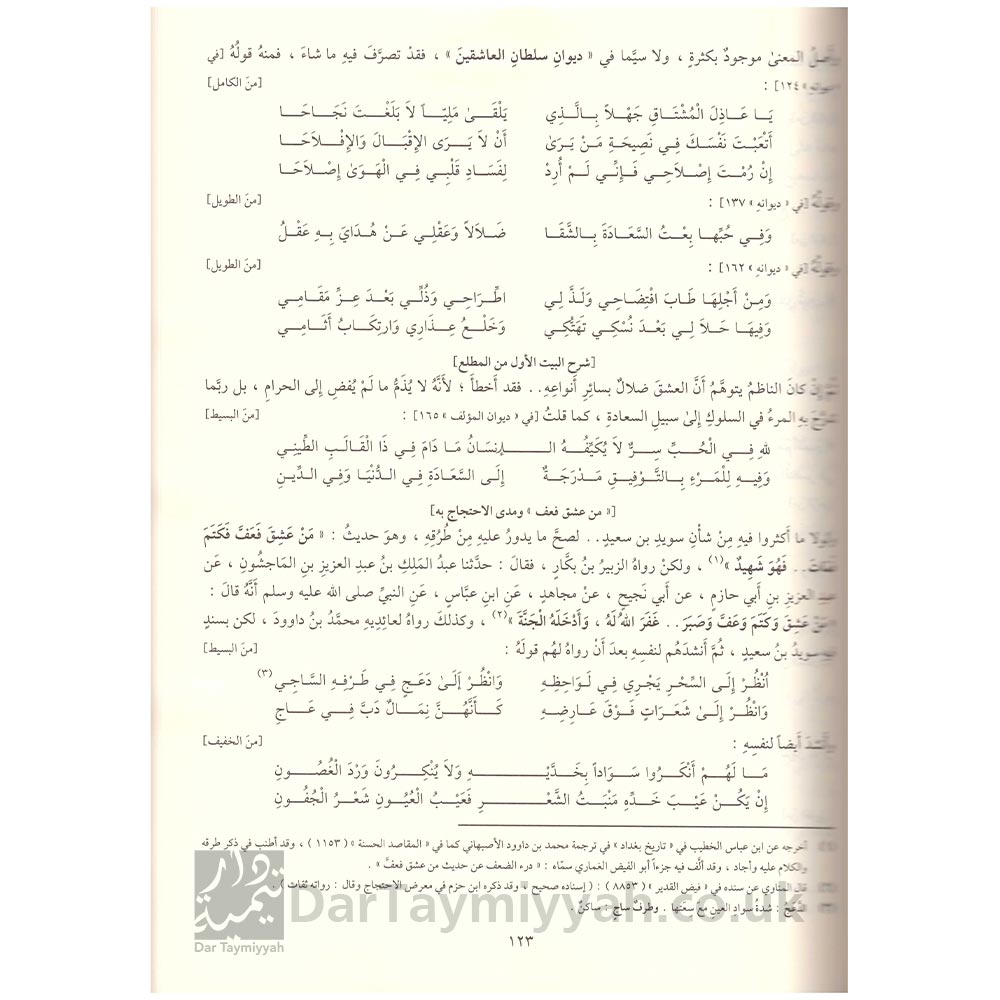 وأصلُ المعنىٰ موجودٌ بكثرةٍ ، ولا سيَّما في « ديوانِ سلطانِ العاشقينَ » ، فقدْ تصرَّفَ فيهِ ما شاءَ ، فمنهُ قولُهُ [في
« ديوانهِ » ١٢٤] : [منَ الكامل]
يَا عَاذِلَ الْمُشْتَاقِ جَهْلاً بِالَّذِي يَلْقَىٰ مَلِيّاً لاَ بَلَغْتَ نَجَاحَا
أَتْعَبْتَ نَفْسَكَ فِي نَصِيحَةِ مَنْ يَرَىٰ أَنْ لاَ يَرَى الإِقْبَالَ وَالإِفْلاَحَا
إِنْ رُمْتَ إِصْلاَحِي فَإِنِّي لَمْ أُرِدْ لِفَسَادِ قَلْبِي فِي الْهَوَىٰ إِصْلاَحَا
وقولُهُ [في « ديوانهِ » ١٣٧] : [منَ الطويل]
وَفِي حُبِّهَا بِعْتُ السَّعَادَةَ بِالشَّقَا ضَلاَلاً وَعَقْلِي عَنْ هُدَايَ بِهِ عَقْلُ
وقولُهُ [في « ديوانهِ » ١٦٢] : [منَ الطويل]
وَمِنْ أَجْلِهَا طَابَ افْتِضَاحِي وَلَذَّ لِي اطِّرَاحِي وَذُلِّي بَعْدَ عِزِّ مَقَامِي
وَفِيهَا حَلاَ لِي بَعْدَ نُسْكِي تَهَتُّكِي وَخَلْعُ عِذَارِي وَارتِكَابُ أَثَامِي
[شرح البيت الأول من المطلع]
ثمَّ إنْ كانَ الناظمُ يتوهَّمُ أَنَّ العشقَ ضلالٌ بسائرِ أَنواعِهِ.. فقد أخطأَ ؛ لأَنَّهُ لا يُذَمُّ ما لَمْ يُفضِ إِلى الحرامِ ، بل ربَّما
تدرَّجَ بهِ المرءُ في السلوكِ إِلىٰ سبيلِ السعادةِ ، كما قلتُ [في « ديوان المؤلف » ١٦٥] : [منَ البسيط]
للهِ فِي الْحُبِّ سِرٌّ لاَ يُكَيِّفُهُ الْـ إِنسَانُ مَا دَامَ فِي ذَا الْقَالَبِ الطِّينِي
وَفِيهِ لِلْمَرْءِ بِالتَّوْفِيقِ مَدْرَجَةٌ إِلَى السَّعَادَةِ فِي الدُّنْيَا وَفِي الدِّينِ
[« من عشق فعف » ومدى الاحتجاج به]
ولولا ما أَكثروا فيهِ مِنْ شأنِ سويدِ بن سعيدٍ.. لصحَّ ما يدورُ عليهِ مِنْ طُرُقِهِ ، وهوَ حديثُ : « مَنْ عَشِقَ فَعَفَّ فَكَتَمَ
فَمَاتَ.. فَهُوَ شَهِيدٌ »(١) ، ولكنْ رواهُ الزبيرُ بنُ بكَّارٍ ، فقالَ : حدَّثنا عبدُ المَلِكِ بنُ عبدِ العزيزِ بنِ الماجشُونِ ، عَن
عبدِ العزيزِ بنِ أَبي حازمٍ ، عن أَبي نَجيحٍ ، عنْ مجاهدٍ ، عَنِ ابنِ عبَّاسٍ ، عَنِ النبيِّ صلى الله عليه وسلم أَنَّهُ قالَ :
« مَنْ عَشِقَ وَكَتَمَ وَعَفَّ وَصَبَرَ.. غَفَرَ اللهُ لَهُ ، وَأَدْخَلَهُ الْجَنَّةَ »(٢) ، وكذلكَ رواهُ لعائِديهِ محمَّدُ بنُ داوودَ ، لكن بسندٍ
فيهِ سويدُ بنُ سعيدٍ ، ثُمَّ أَنشدَهُم لنفسِهِ بعدَ أَنْ رواهُ لهُم قولَهُ : [منَ البسيط]
اُنْظُرْ إِلَى السِّحْرِ يَجْرِي فِي لَوَاحِظِهِ وَانْظُرْ إِلَىٰ دَعَجٍ فِي طَرْفِهِ السَّاجِي(٣)
وَانْظُرْ إِلَىٰ شَعَرَاتٍ فَوْقَ عَارِضِهِ كَأَنَّهُنَّ نِمَالٌ دَبَّ فِي عَاجِ
وأَنشدَ أَيضاً لنفسِهِ : [منَ الخفيف]
مَا لَهُمْ أَنْكَرُوا سَوَاداً بِخَدَّيْـ ـهِ وَلاَ يُنْكِرُونَ وَرْدَ الْغُصُونِ
إِنْ يَكُنْ عَيْبَ خَدِّهِ مَنْبَتُ الشَّعْـ ـرِ فَعَيْبُ الْعُيُونِ شَعْرُ الْجُفُونِ
(١) أخرجه عن ابن عباس الخطيب في « تاريخ بغداد » في ترجمة محمد بن داوود الأصبهاني كما في « المقاصد الحسنة » ( ١١٥٣ ) ، وقد أطنب في ذكر طرقه
والكلام عليه وأجاد ، وقد ألَّف فيه جزءاً أبو الفيض الغماري سمَّاه : « درء الضعف عن حديث من عشق فعفَّ » .
(٢) قال المناوي عن سنده في « فيض القدير » ( ٨٨٥٣ ) : ( إسناده صحيح ، وقد ذكره ابن حزم في معرض الاحتجاج وقال : رواته ثقات ) .
(٣) الدَّعَجُ : شدةُ سوادِ العين مع سعَتها . وطرفٌ ساجٍ : ساكنٌ .
دار تيمية
Dar Taymiyyah
DarTaymiyyah.co.uk
١٢٣